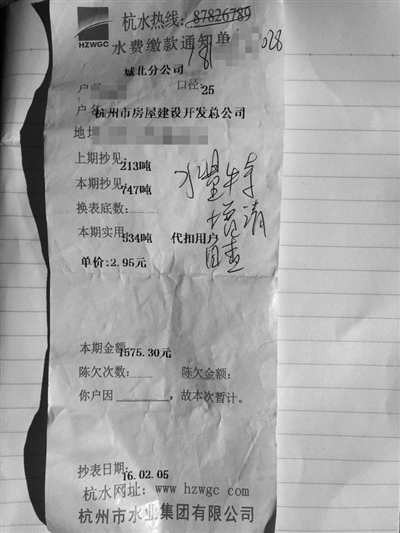 HZWGC
杭水热线：87826789
水费缴款通知单
028
城北分公司
口径：25
户名：杭州市房屋建设开发总公司
地址
上期抄见：213吨
本期抄见：747吨
换表底数：
本期实用：534吨 代扣用户
单价：2.95元
水量特
增请
自查
本期金额：1575.30元
陈欠次数： 陈欠金额：
你户因________，故本次暂计。
抄表日期：16.02.05
杭水网址：www hzwgc com
杭州市水业集团有限公司